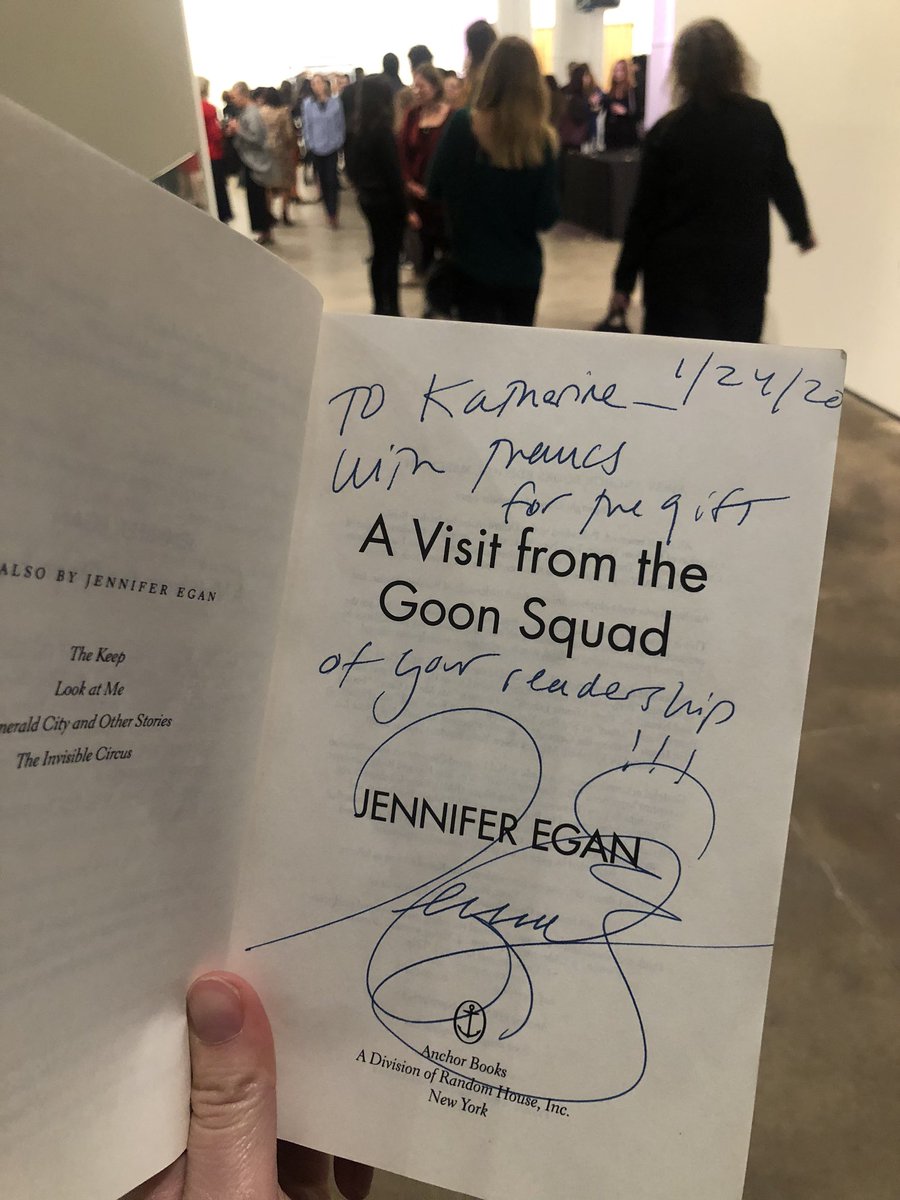 ALSO BY JENNIFER EGAN
The Keep
Look at Me
merald City and Other Stories
The Invisible Circus
To Katherine — 1/24/20
With thanks
for the gift
A Visit from the
Goon Squad
of your readership
!!!
JENNIFER EGAN
Anchor Books
A Division of Random House, Inc.
New York